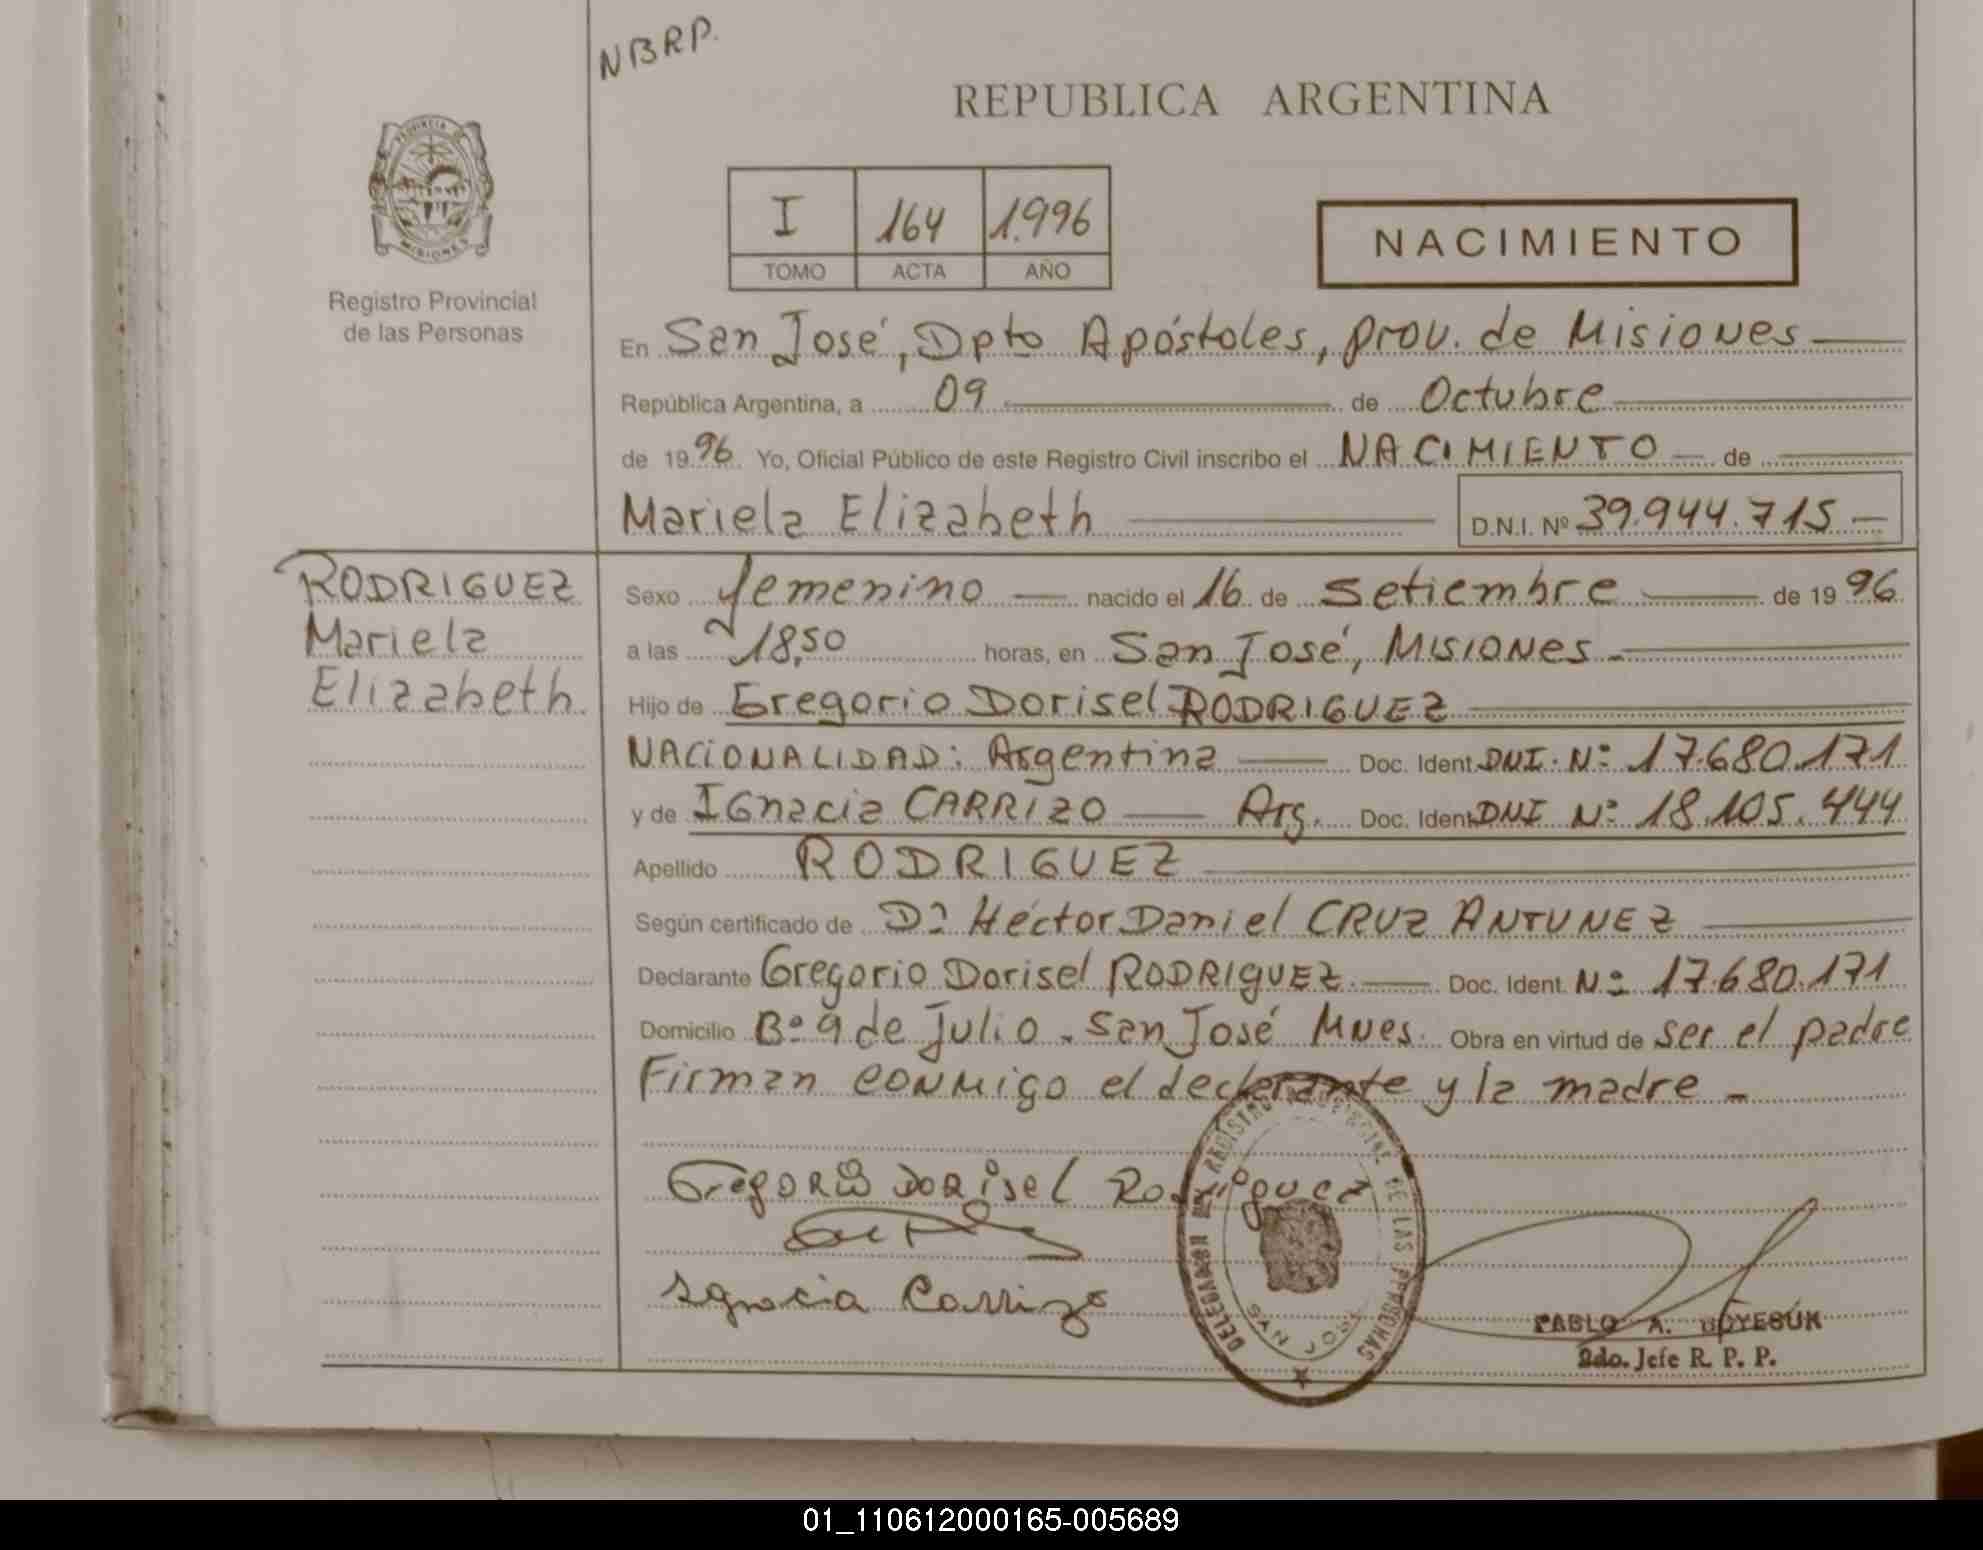 NBRP.
REPUBLICA ARGENTINA
PROVINCIA DE
MISIONES
Registro Provincial
de las Personas
I 164 1.996
TOMO ACTA AÑO
NACIMIENTO
En San José, Dpto Apóstoles, prov. de Misiones
República Argentina, a 09 de Octubre
de 1996. Yo, Oficial Público de este Registro Civil inscribo el NACIMIENTO de
Mariela Elizabeth D.N.I. Nº 39.944.715
RODRIGUEZ
Mariela
Elizabeth
Sexo femenino nacido el 16 de Setiembre de 1996
a las 18,50 horas, en San José, Misiones
Hijo de Gregorio Dorisel RODRIGUEZ
NACIONALIDAD: Argentina Doc. Ident. DNI. Nº 17.680.171
y de Ignacia CARRIZO Arg. Doc. Ident. DNI Nº 18.105.444
Apellido RODRIGUEZ
Según certificado de Dº Héctor Daniel CRUZ ANTUNEZ
Declarante Gregorio Dorisel RODRIGUEZ. Doc. Ident. Nº 17.680.171
Domicilio Bº 9 de Julio - San José Mnes. Obra en virtud de ser el padre
Firman conmigo el declarante y la madre -
Gregorio Dorisel Rodriguez
Ignacia Carrizo
DELEGACION DEL REGISTRO PROVINCIAL DE LAS PERSONAS
SAN JOSE
PABLO A.
2do. Jefe R. P. P.
01_110612000165-005689